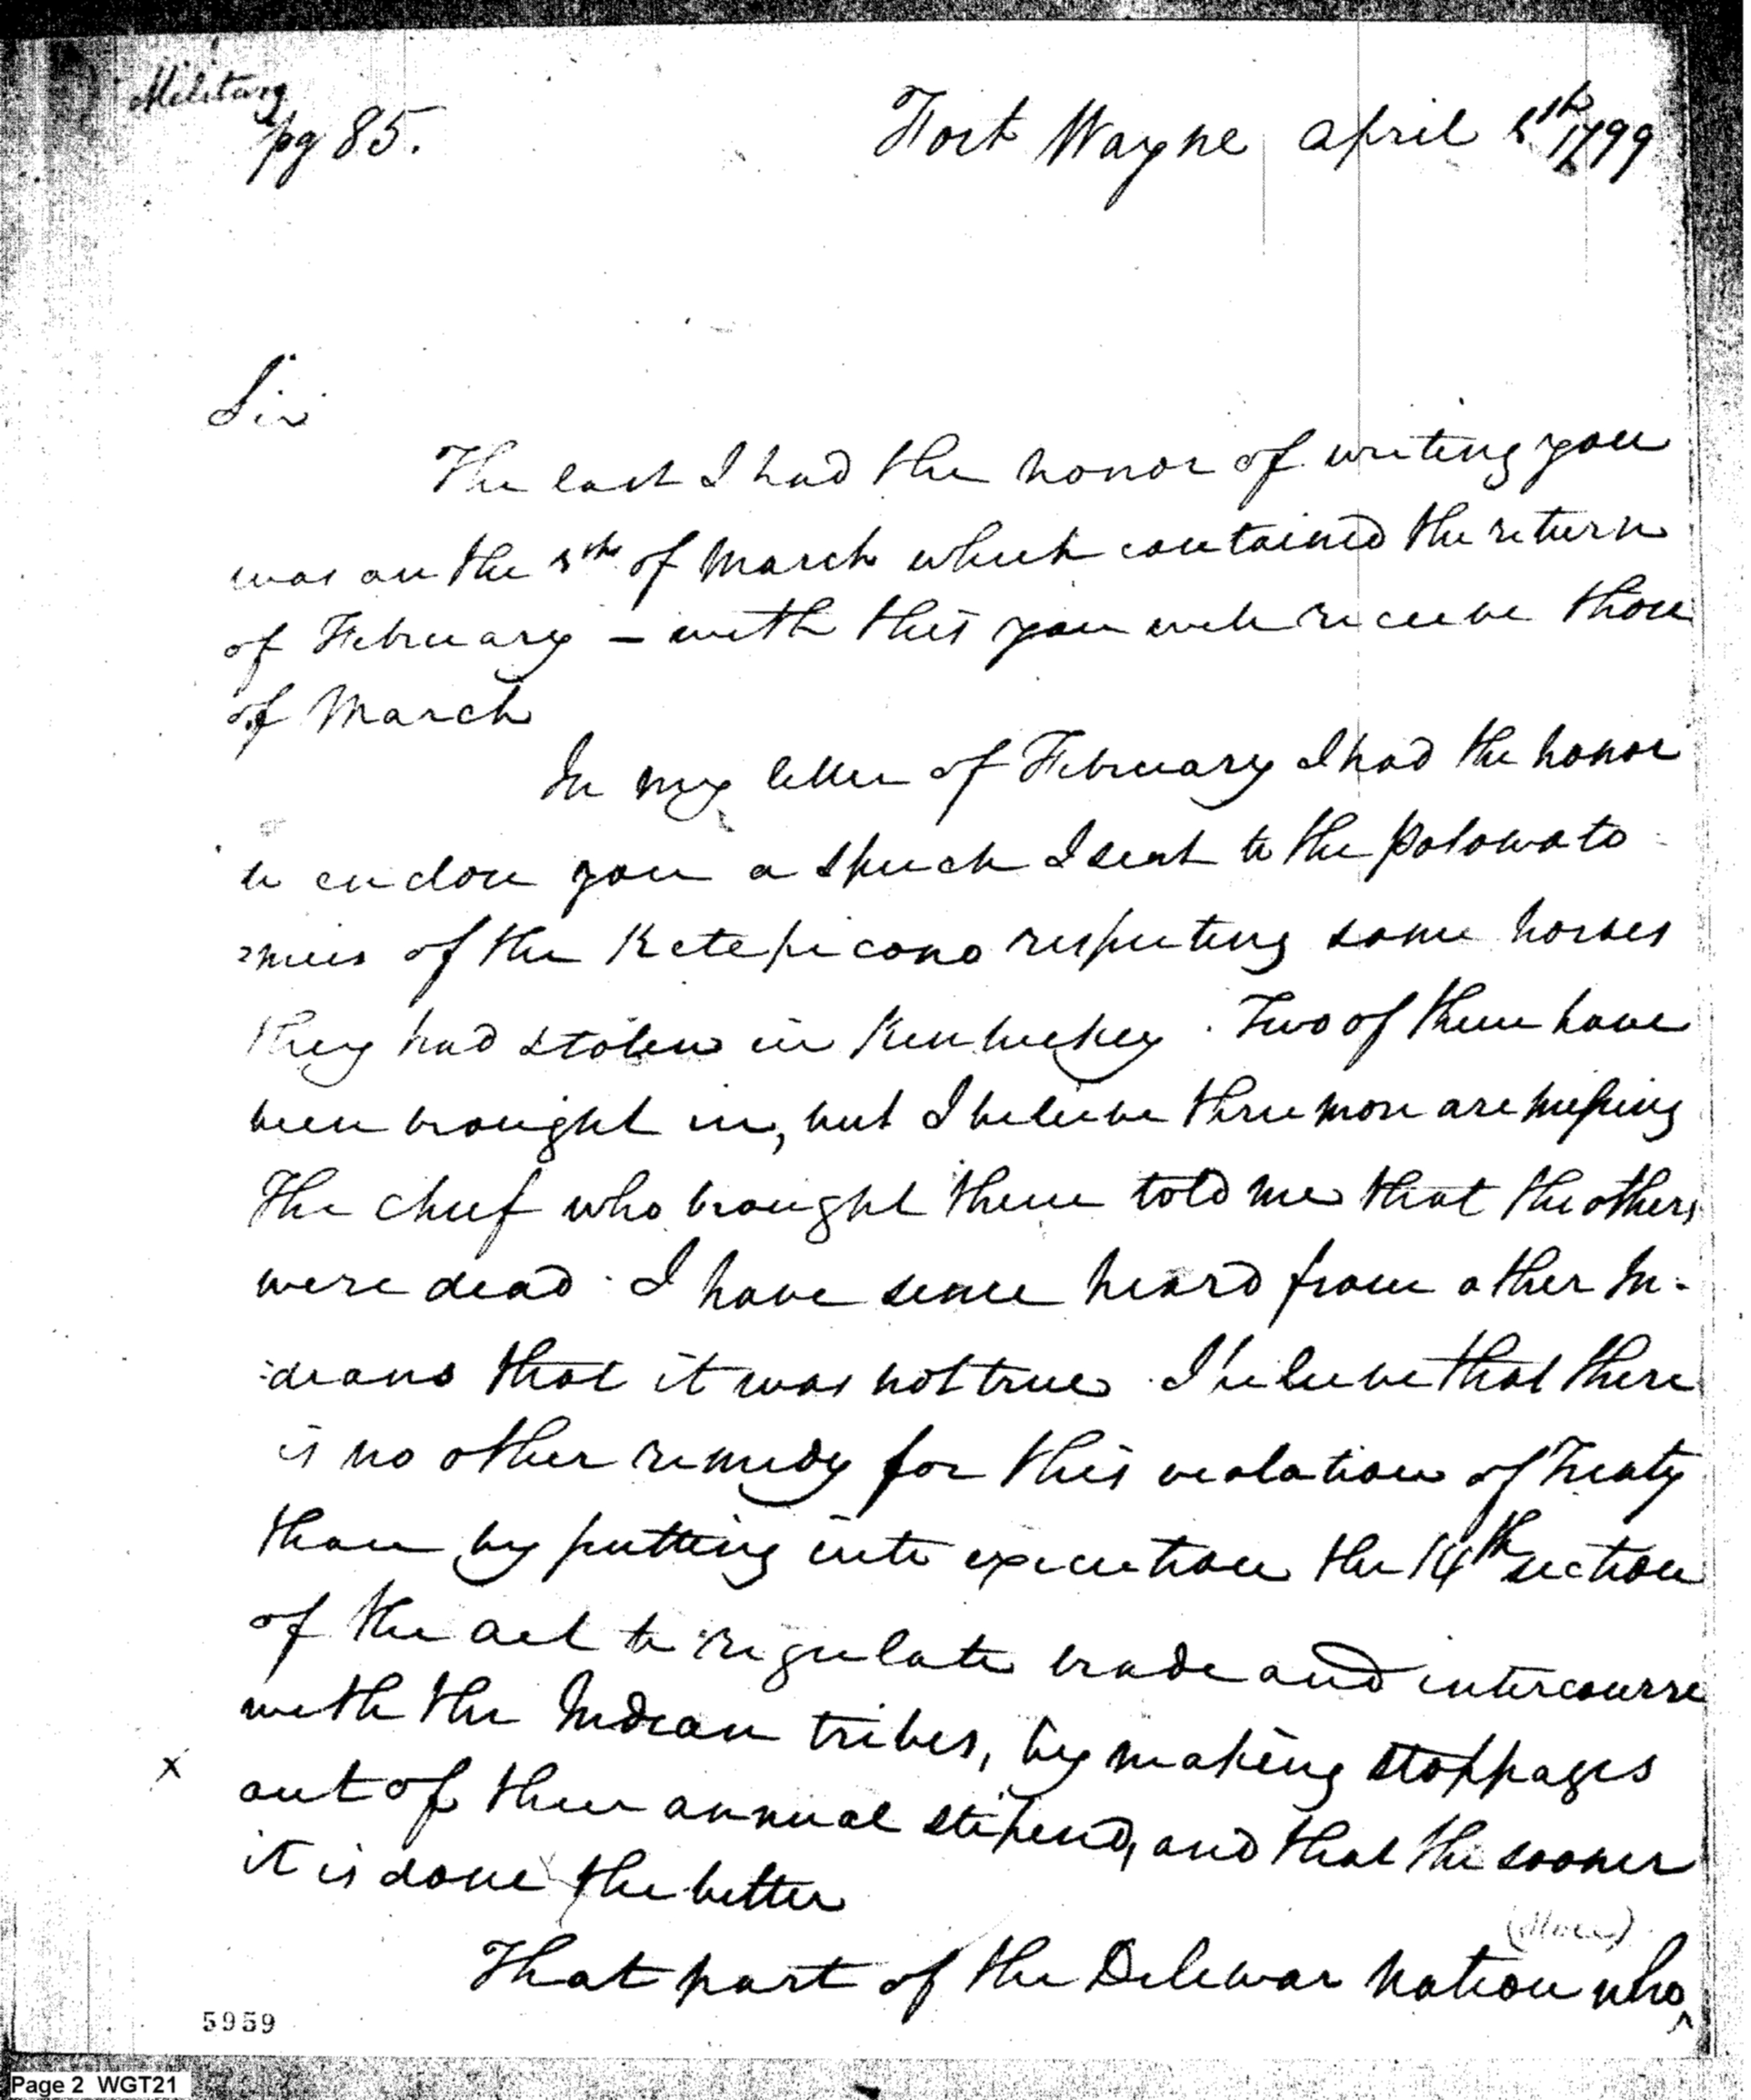 Military
pg 85.
Fort Wayne April 5th 1799
Sir
The last I had the honor of writing you
was on the 5th of March which contained the return
of February – with this you will receive those
of March
In my letter of February I had the honor
to enclose you a speech I sent to the Potowato
=mies of the Ketepicono respecting some horses
they had stolen in Kentuckey. Two of them have
been brought in, but I believe three more are missing
The chief who brought them told me that the others
were dead. I have since heard from other In-
-dians that it was not true. I believe that there
is no other remedy for this violation of Treaty
than by putting into execution the 14th section
of the act to regulate trade and intercourse
with the Indian tribes, by making stoppages
x out of their annual stipend, and that the sooner
it is done the better
That part of the Delewar nation who
5959
Page 2 WGT21